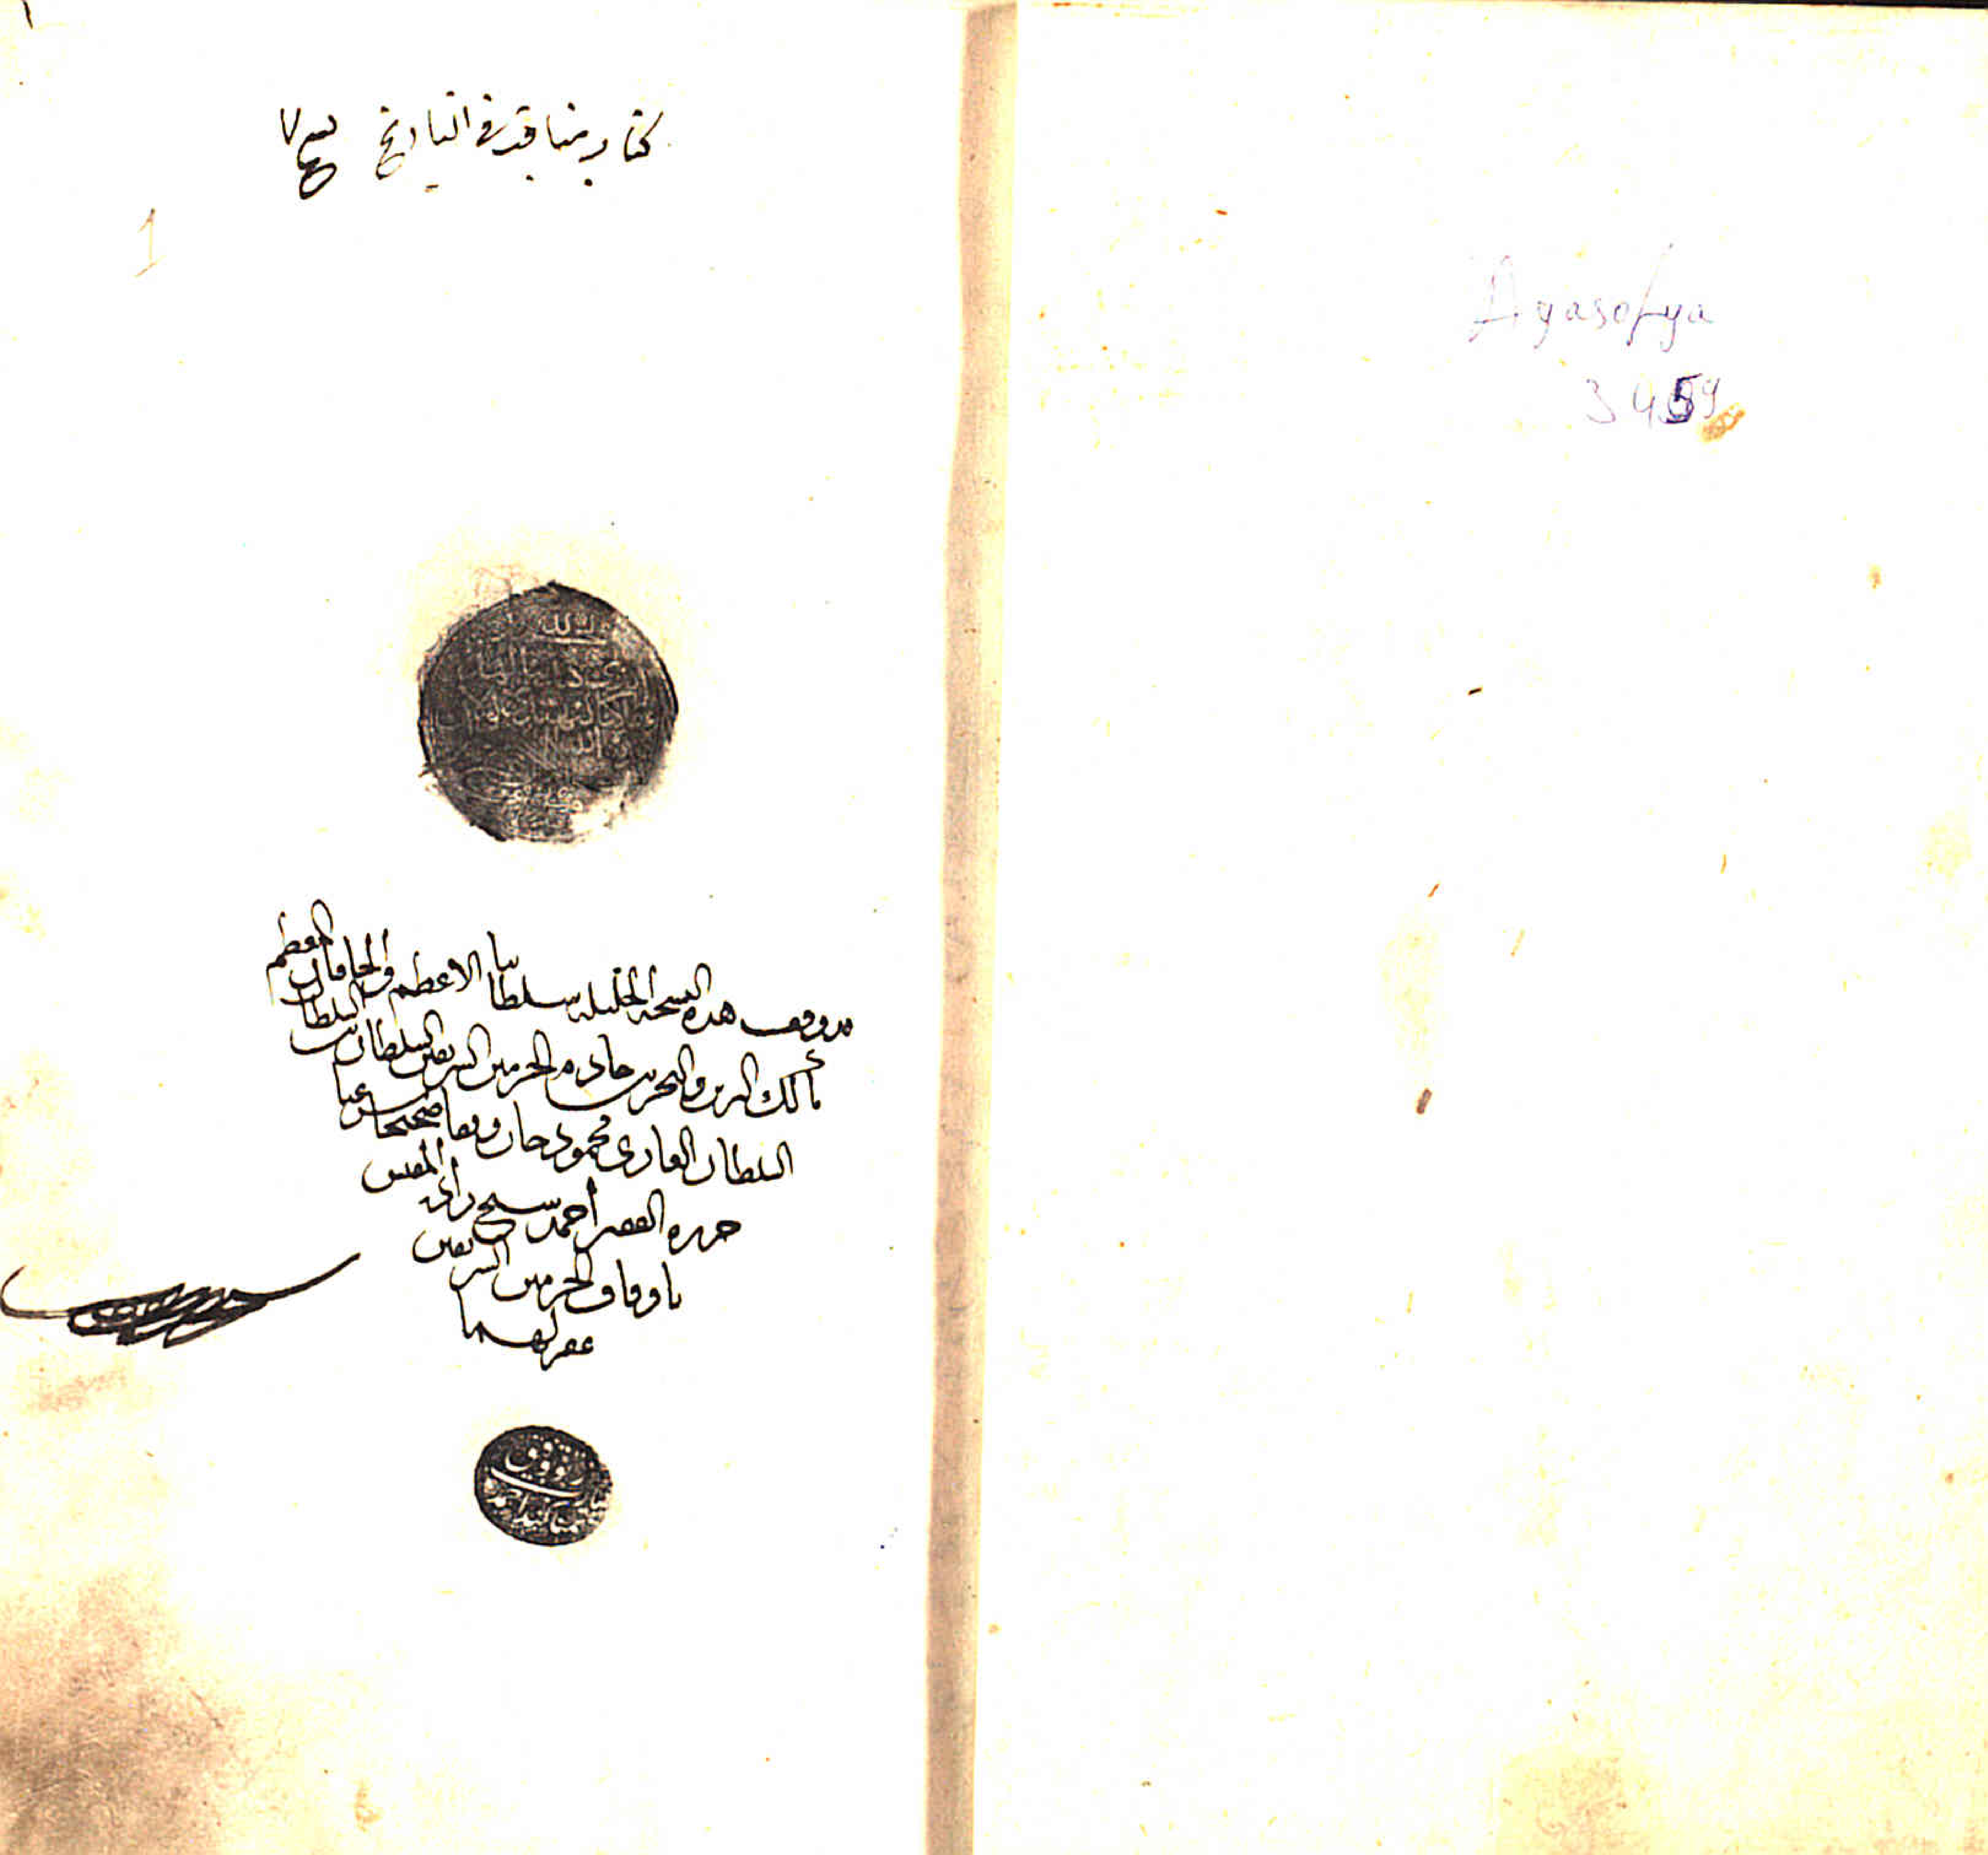 Ayasofya
3459
كتاب مناقب في التاريخ
1
قد وقف هذه النسخة الجليلة سلطاننا الاعظم والخاقان المعظم
مالك البرين والبحرين خادم الحرمين الشريفين السلطان بن السلطان
السلطان الغازي محمود خان وقفا صحيحا شرعيا
حرره الفقير أحمد شيخ زاده المفتش
باوقاف الحرمين الشريفين
غفر لهما